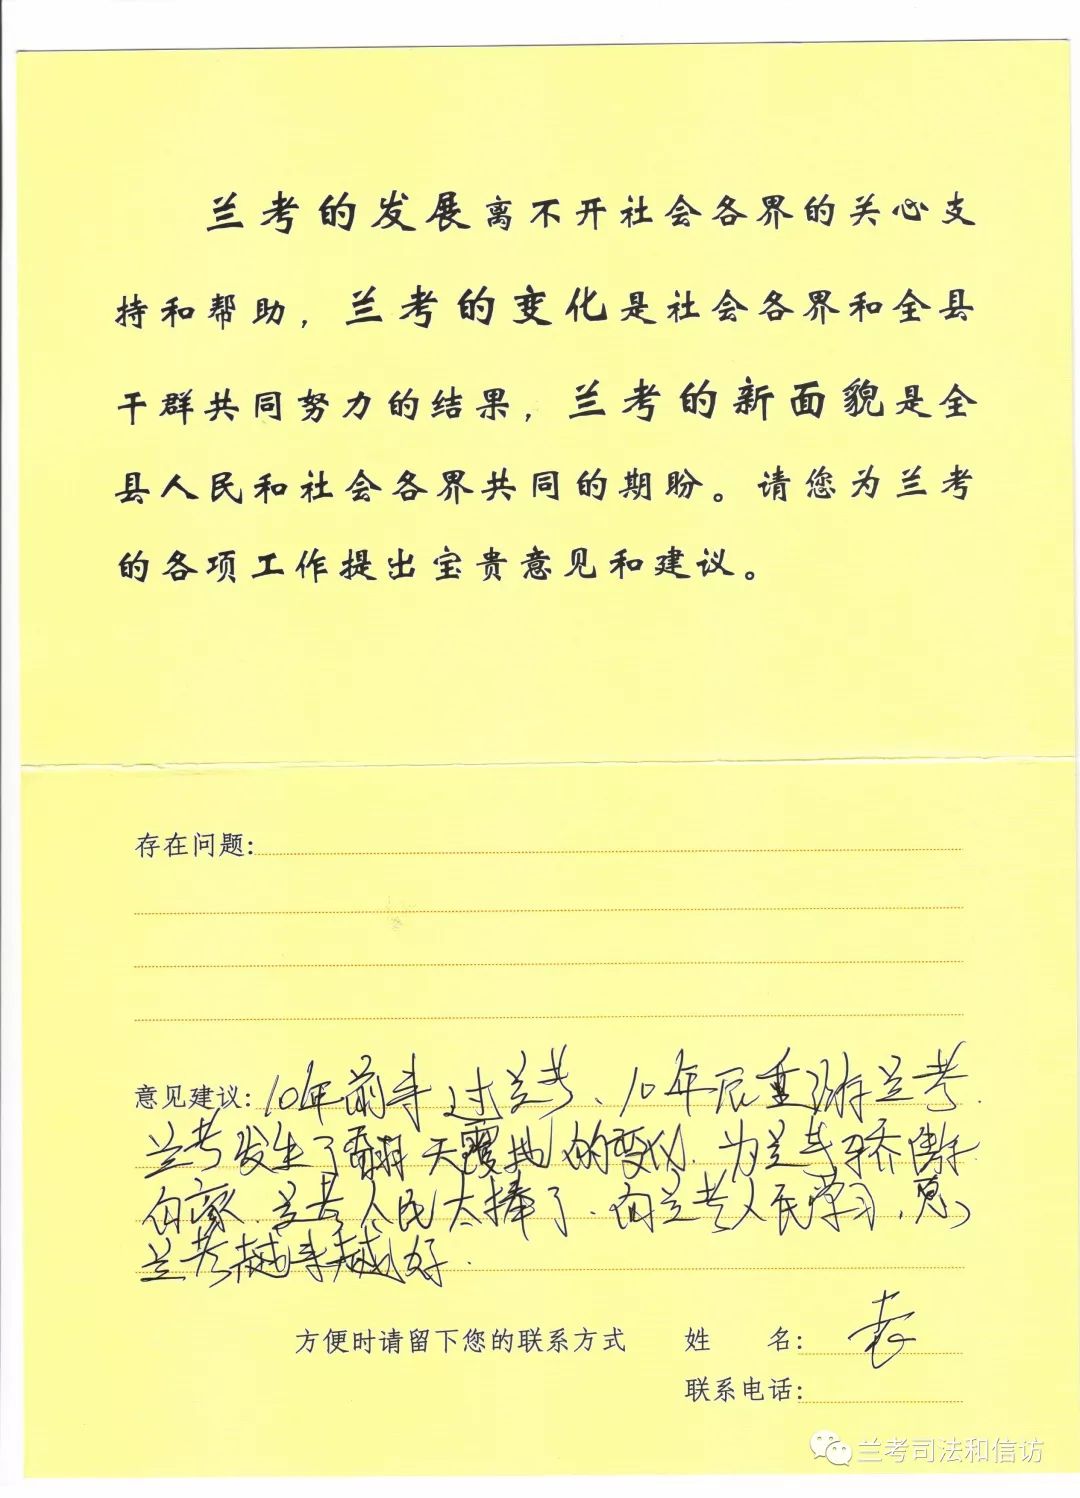 兰考的发展离不开社会各界的关心支
持和帮助，兰考的变化是社会各界和全县
干群共同努力的结果，兰考的新面貌是全
县人民和社会各界共同的期盼。请您为兰考
的各项工作提出宝贵意见和建议。
存在问题：
意见建议：10年前来过兰考、10年后重游兰考.
兰考发生了翻天覆地的变化.为兰考骄傲
自豪.兰考人民太棒了.向兰考人民学习，愿
兰考越来越好.
方便时请留下您的联系方式 姓 名：
联系电话：
兰考司法和信访